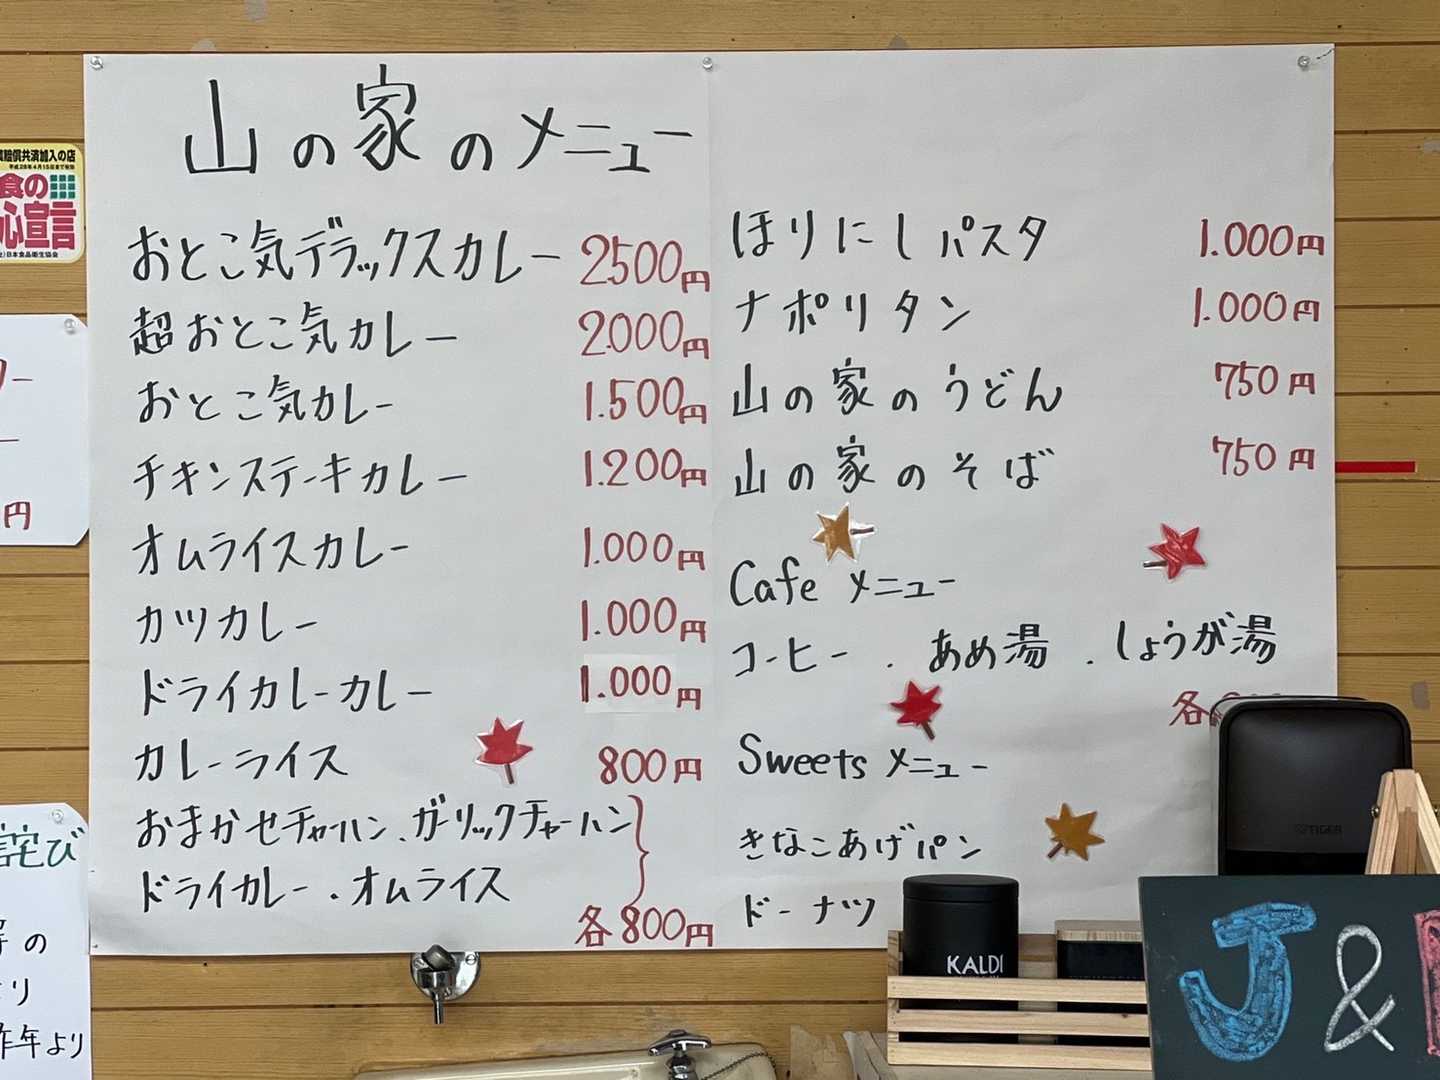 山の家のメニュー
おとこ気デラックスカレー 2500円
超おとこ気カレー 2.000円
おとこ気カレー 1.500円
チキンステーキカレー 1.200円
オムライスカレー 1.000円
カツカレー 1.000円
ドライカレーカレー 1.000円
カレーライス 800円
おまかせチャーハン、ガーリックチャーハン
ドライカレー・オムライス
各800円
ほりにしパスタ 1.000円
ナポリタン 1.000円
山の家のうどん 750円
山の家のそば 750円
Cafe メニュー
コーヒー . あめ湯 . しょうが湯
各
Sweets メニュー
きなこあげパン
ドーナツ
賠償共済加入の店
平成28年4月15日まで有効
食の
心宣言
日本食品衛生協会
ー
円
詫び
の
り
昨年より
TIGER
KALDI
J&